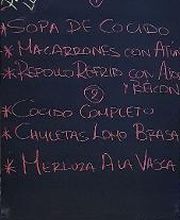 *SOPA DE COCIDO
*MACARRONES CON ATÚN
*REPOLLO REFRITO CON AJO
Y BEICON
2
*COCIDO COMPLETO
*CHULETAS LOMO BRASA
*MERLUZA A LA VASCA